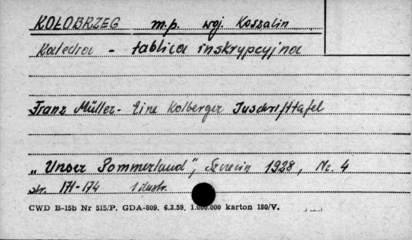 KOŁOBRZEG m.p. woj. Koszalin
Katedra - tablica inskrypcyjna
Franz Müller - Eine Kolberger Inschrifttafel
„Unser Pommerland", Szczecin 1928, Nr. 4
str. 171-174 1 ilustr.
CWD B-15b Nr 515/P. GDA-809. 6.3.59. 1.000.000 karton 180/V.